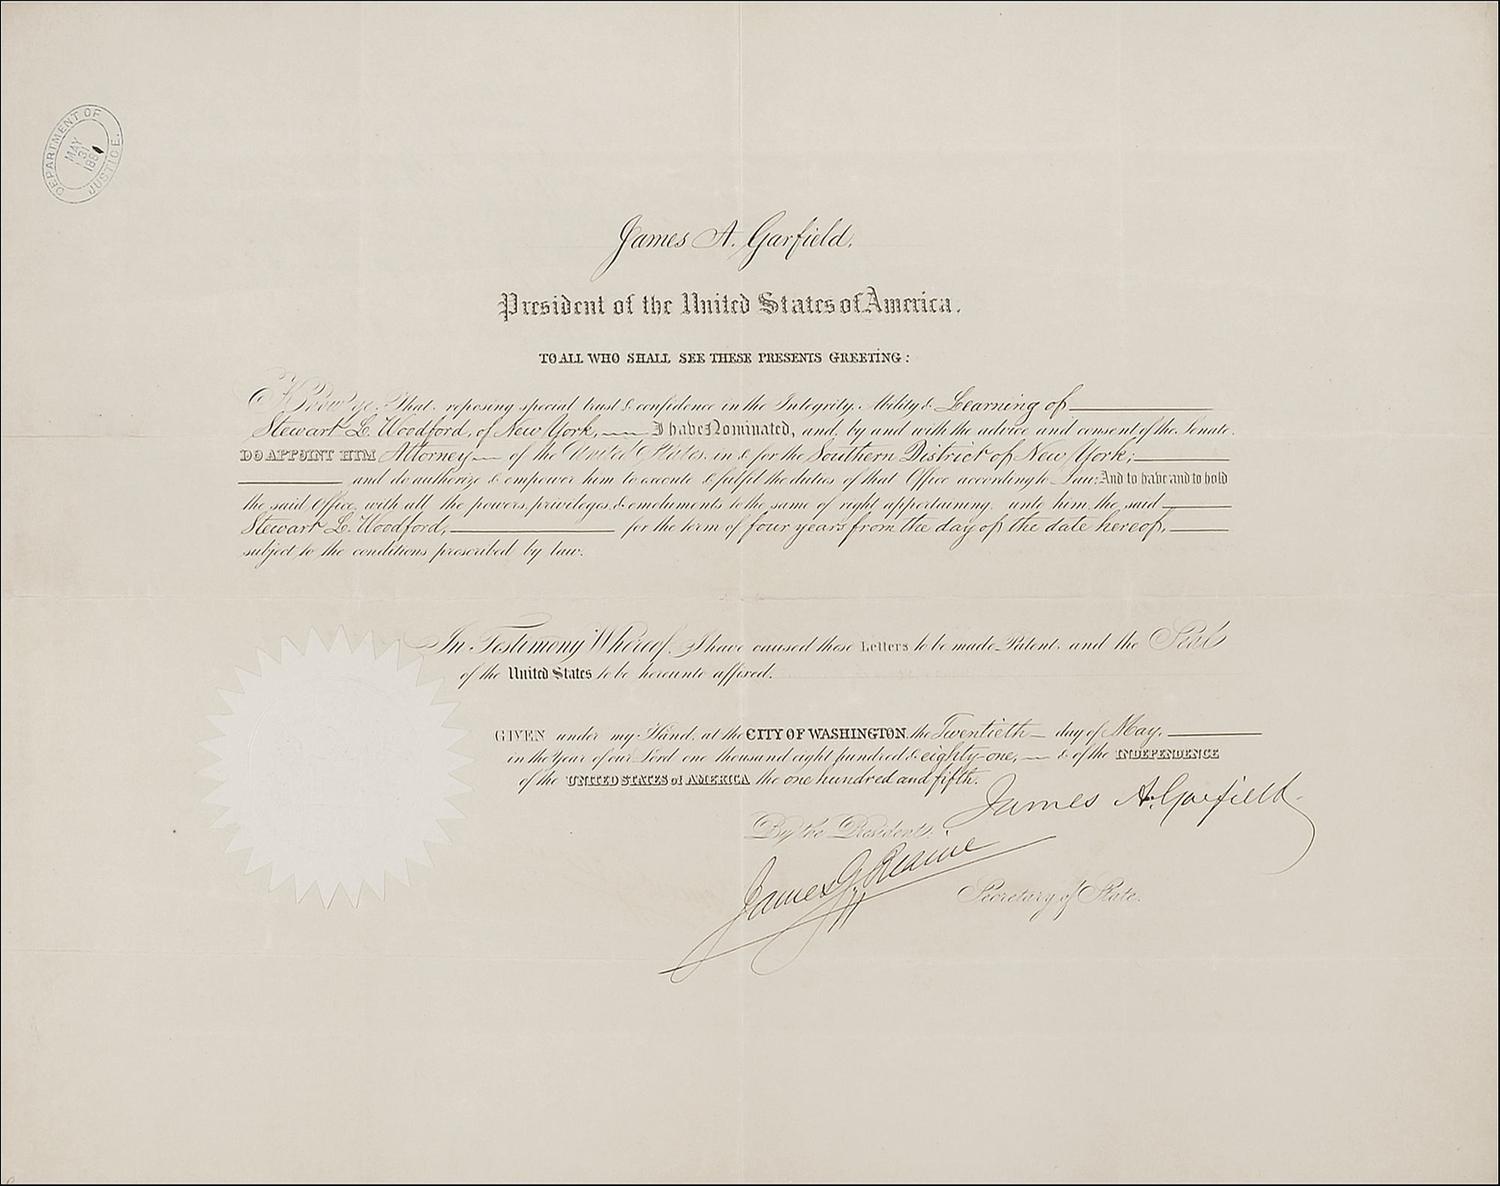 DEPARTMENT OF JUSTICE.
MAY
31
1881
James A. Garfield.
President of the United States of America.
TO ALL WHO SHALL SEE THESE PRESENTS GREETING:
Know ye, That reposing special trust & confidence in the Integrity, Ability & Learning of
Stewart L. Woodford, of New York, I have Nominated, and, by and with the advice and consent of the Senate,
DO APPOINT HIM Attorney of the United States, in & for the Southern District of New York;
and do authorize & empower him to execute & fulfil the duties of that Office according to Law: And to have and to hold
the said Office, with all the powers, privileges, & emoluments to the same of right appertaining, unto him, the said
Stewart L. Woodford, for the term of four years from the day of the date hereof,
subject to the conditions prescribed by law.
In Testimony Whereof, I have caused these Letters to be made Patent, and the Seal
of the United States to be hereunto affixed.
GIVEN under my Hand, at the CITY OF WASHINGTON, the Twentieth day of May,
in the Year of our Lord one thousand eight hundred & eighty-one, & of the INDEPENDENCE
of the UNITED STATES of AMERICA the one hundred and fifth.
James A. Garfield
By the President:
James G. Blaine
Secretary of State.